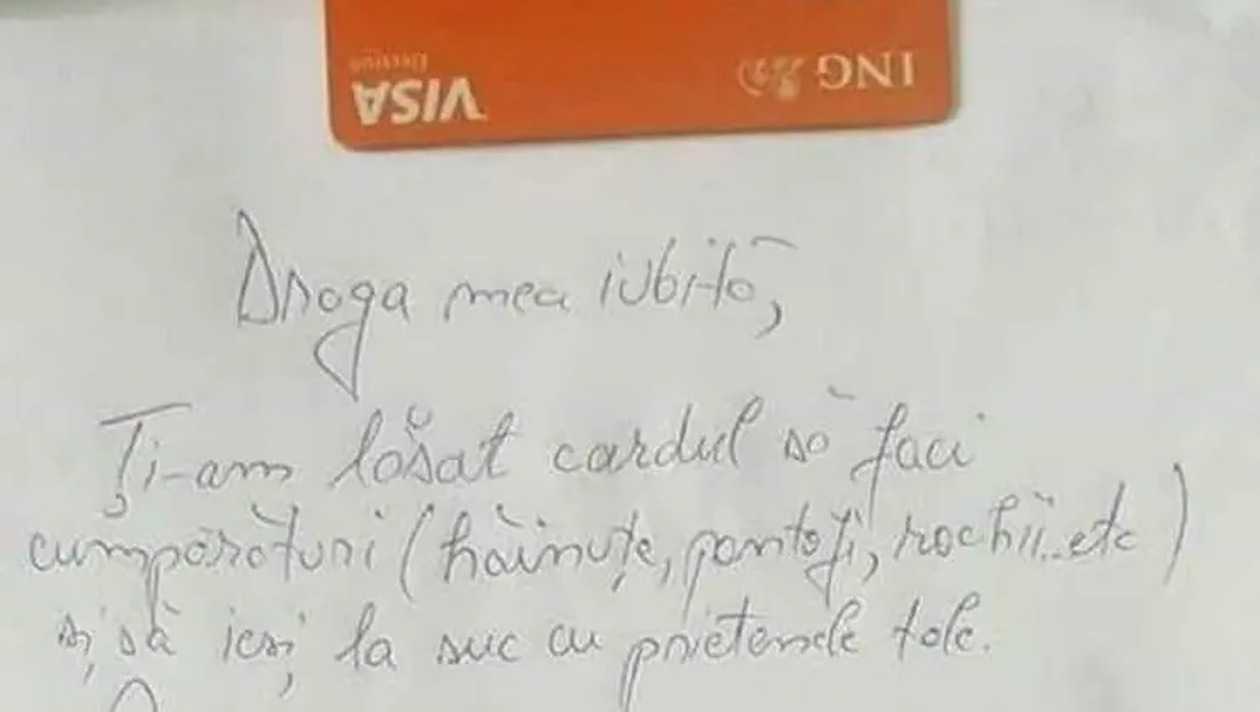 ING
VISA
Electron
Draga mea iubită,
Ți-am lăsat cardul să faci
cumpărături (hăinuțe, pantofi, rochii..etc)
și să ieși la suc cu prietenele tale.